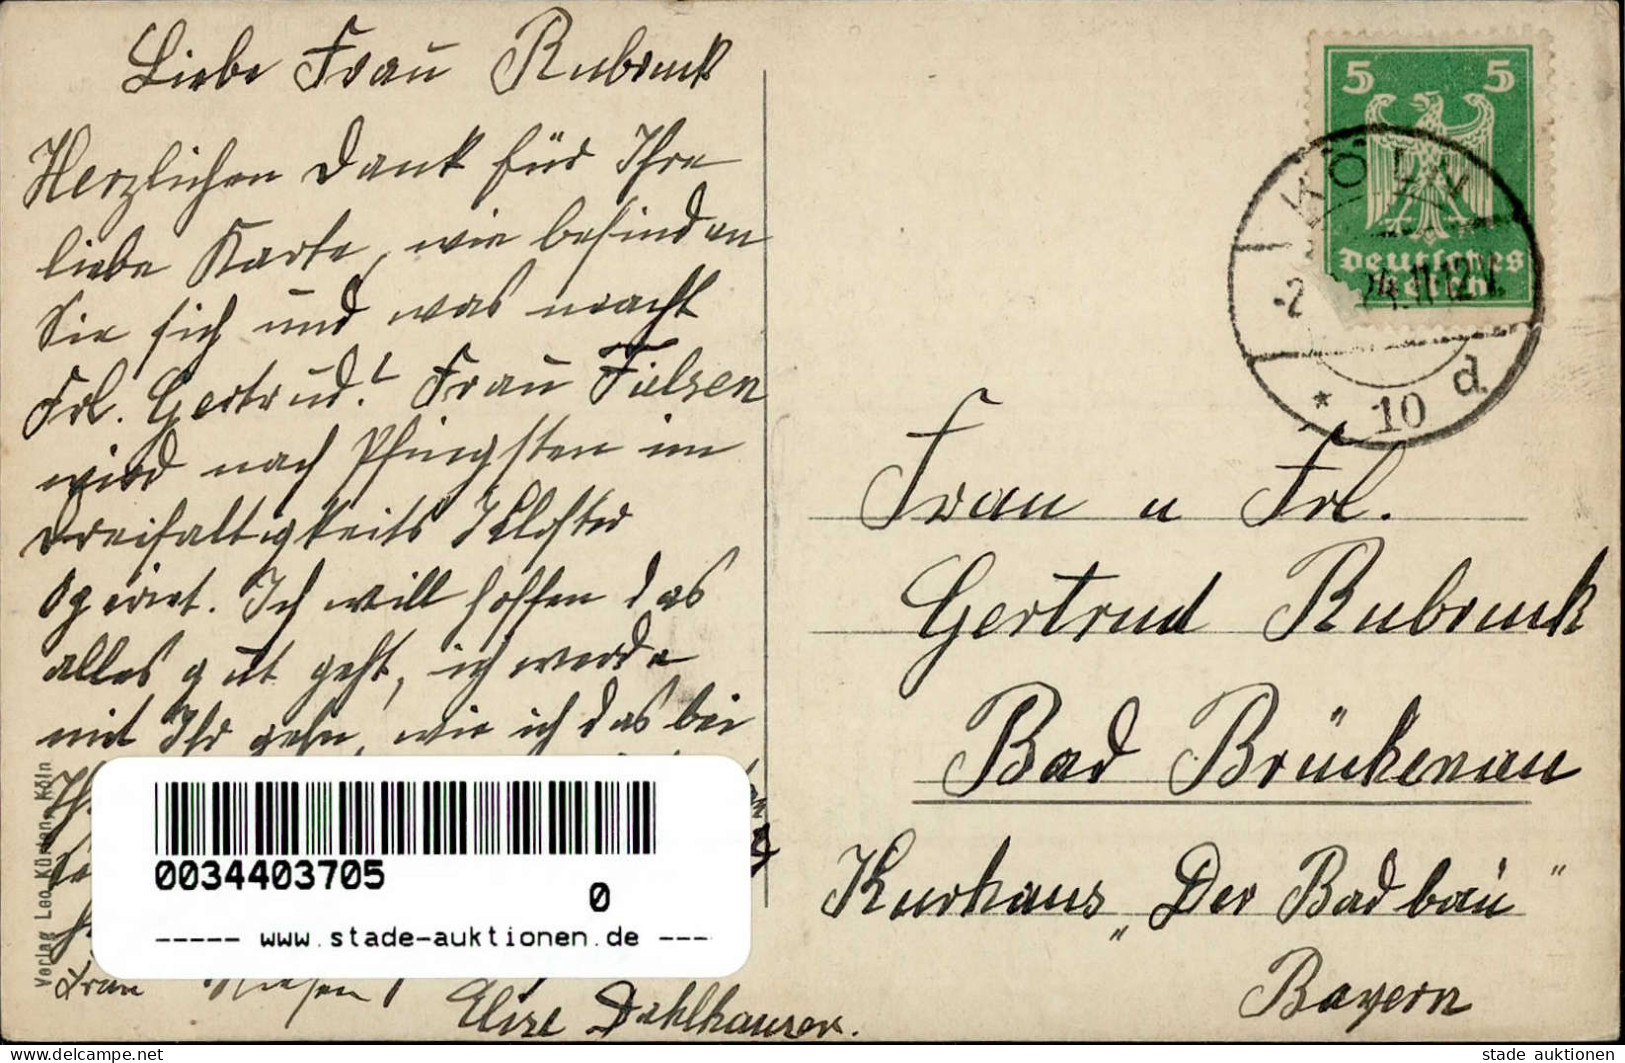 Liebe Frau Rubruck
Herzlichen Dank für Ihre
liebe Karte, wie befinden
Sie sich und was macht
Frl. Gertrud? Frau
wird nach Pfingsten im
Dreifaltigkeits Kloster
operiert. Ich will hoffen das
alles gut geht, ich werde
mit Ihr gehn, wie ich das bei
Frau
Elise Dahlhauser.
Verlag Leo Kürten, Köln
5 5
Deutsches
Reich
KÖLN
-2 24.11-12V.
* 10 d
Frau u Frl.
Gertrud Rubruck
Bad Brückenau
Kurhaus „Der Badbau"
Bayern
0034403705
0
----- www.stade-auktionen.de ---
stade auktionen
www.delcampe.net